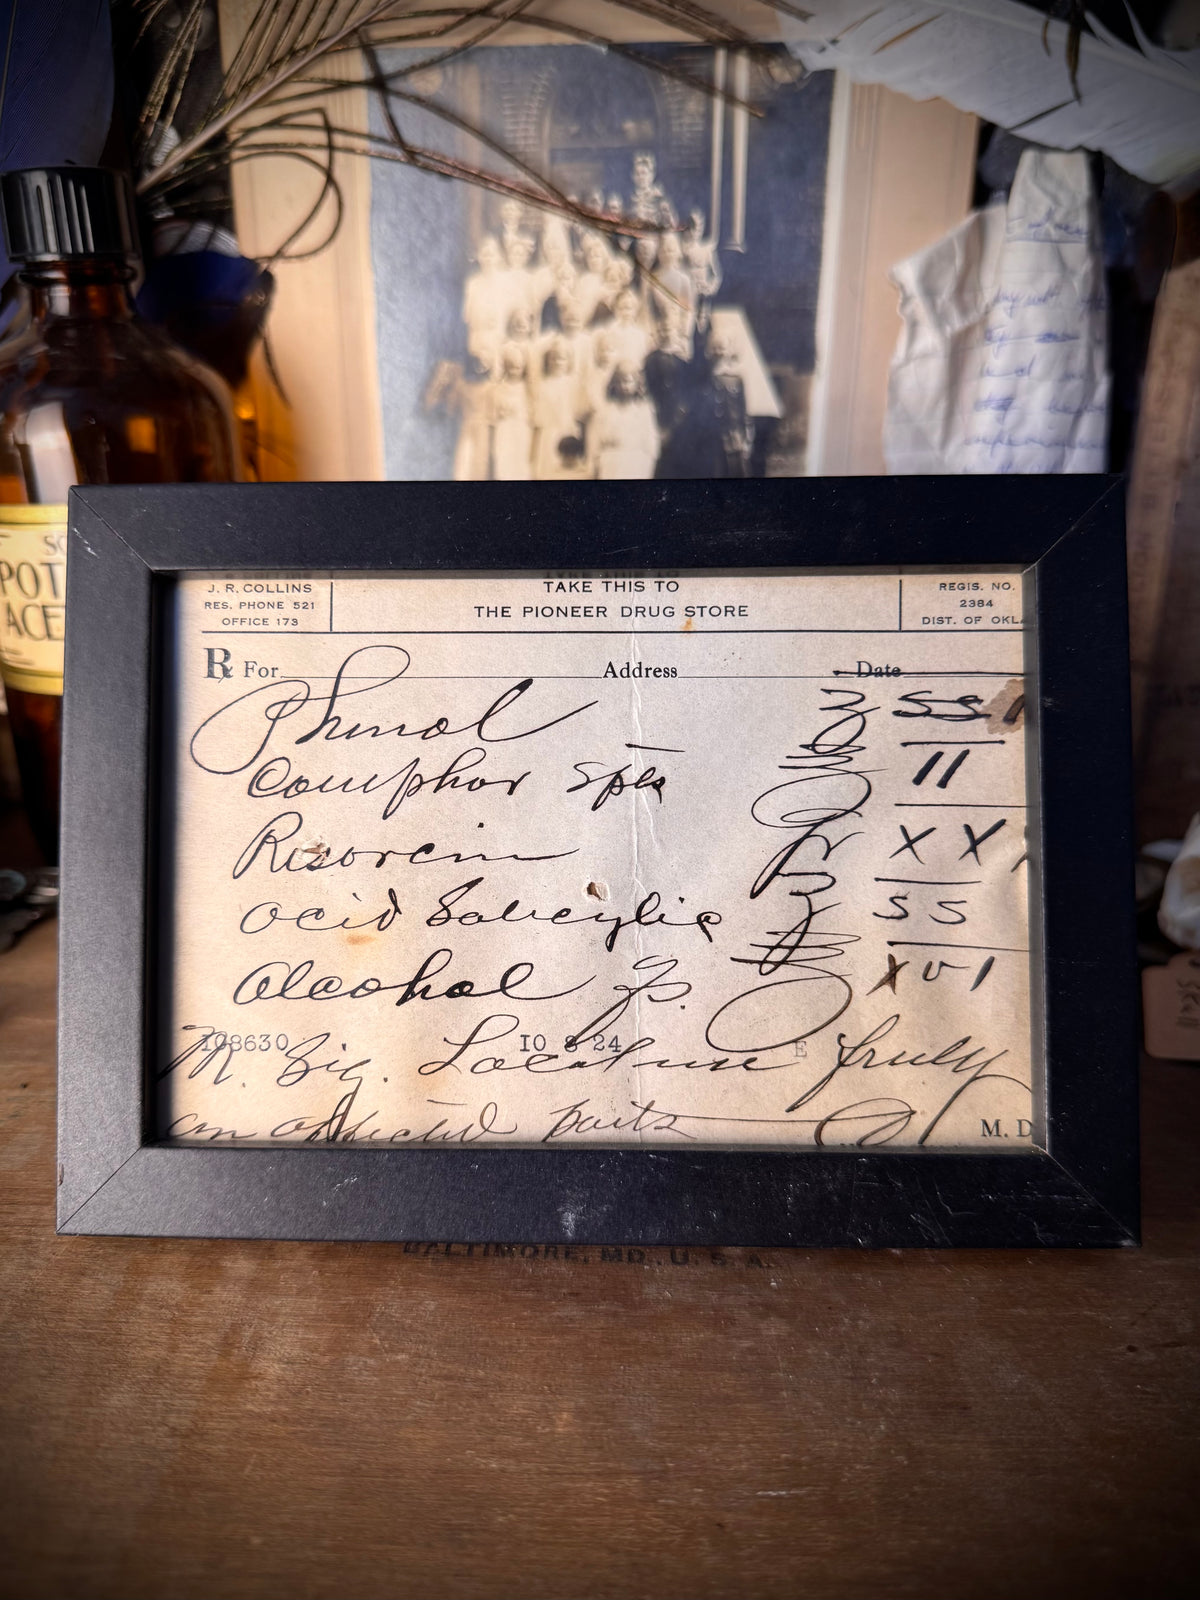 J. R. COLLINS
RES. PHONE 521
OFFICE 173
TAKE THIS TO
THE PIONEER DRUG STORE
REGIS. NO.
2384
DIST. OF OKLA
℞ For Address Date
Phenol ʒ ss
Camphor Spts ℥ 11
Resorcin ʒ X X
Acid Salicylic ʒ ss
Alcohol qs. ℥ xvi
108630 10 8 24 E
M. Sig. Local use freely
on affected parts
M. D
SO
POT
ACE
BALTIMORE, MD., U. S. A.